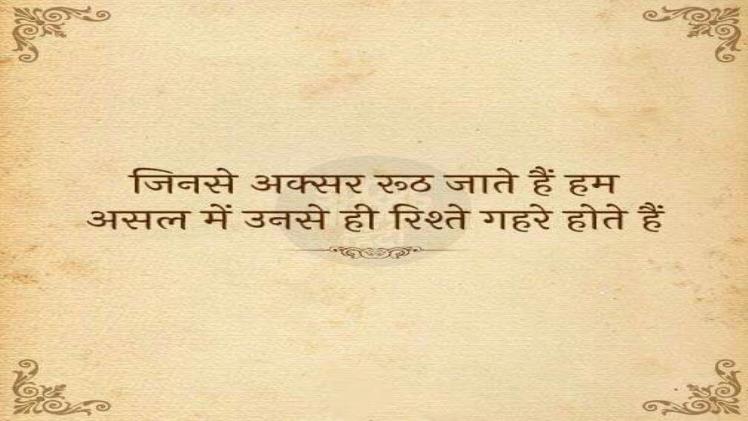 जिनसे अक्सर रूठ जाते हैं हम
असल में उनसे ही रिश्ते गहरे होते हैं